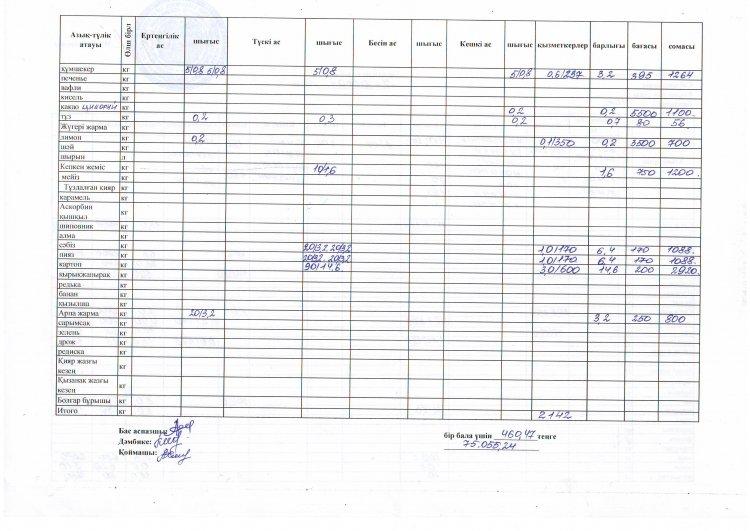 Азық-түлік атауы | Өлш бірл | Ертеңгілік ас | шығыс | Түскі ас | шығыс | Бесін ас | шығыс | Кешкі ас | шығыс | қызметкерлер | барлығы | бағасы | сомасы
құмшекер | кг | 5/0,8 5/0,8 | 5/0,8 | 5/0,8 | 0,6/237 | 3,2 | 395 | 1264
печенье | кг
вафли | кг
кисель | кг
какао цикорий | кг | 0,2 | 0,2 | 5500 | 1100.
тұз | кг | 0,2 | 0,3 | 0,2 | 0,7 | 80 | 56.
Жүгері жарма | кг
лимон | кг | 0,2
шәй | кг | 0,1/350 | 0,2 | 3500 | 700
шырын | л
Кепкен жеміс | кг | 10/1,6 | 1,6 | 750 | 1200.
мейіз | кг
Тұздалған қияр | кг
карамель | кг
Аскорбин қышқыл | кг
шиповник | кг
алма | кг
сәбіз | кг | 20/3,2 20/3,2 | 1,0/170 | 6,4 | 170 | 1088.
пияз | кг | 20/3,2 20/3,2 | 1,0/170 | 6,4 | 170 | 1088.
картоп | кг | 90/14,6 | 3,0/600 | 14,6 | 200 | 2920.
қырыққабырақ | кг
редька | кг
банан | кг
қызылша | кг
Арпа жарма | кг | 20/3,2 | 3,2 | 250 | 800
сарымсақ | кг
зелень | кг
дрож | кг
редиска | кг
Қияр жазғы кезең | кг
Қызанақ жазғы кезең | кг
Болгар бұрышы | кг
Итого | кг | 2142
Бас аспазшы:
Дәмбике:
Қоймашы:
бір бала үшін 460,47 теңге
75.055,24